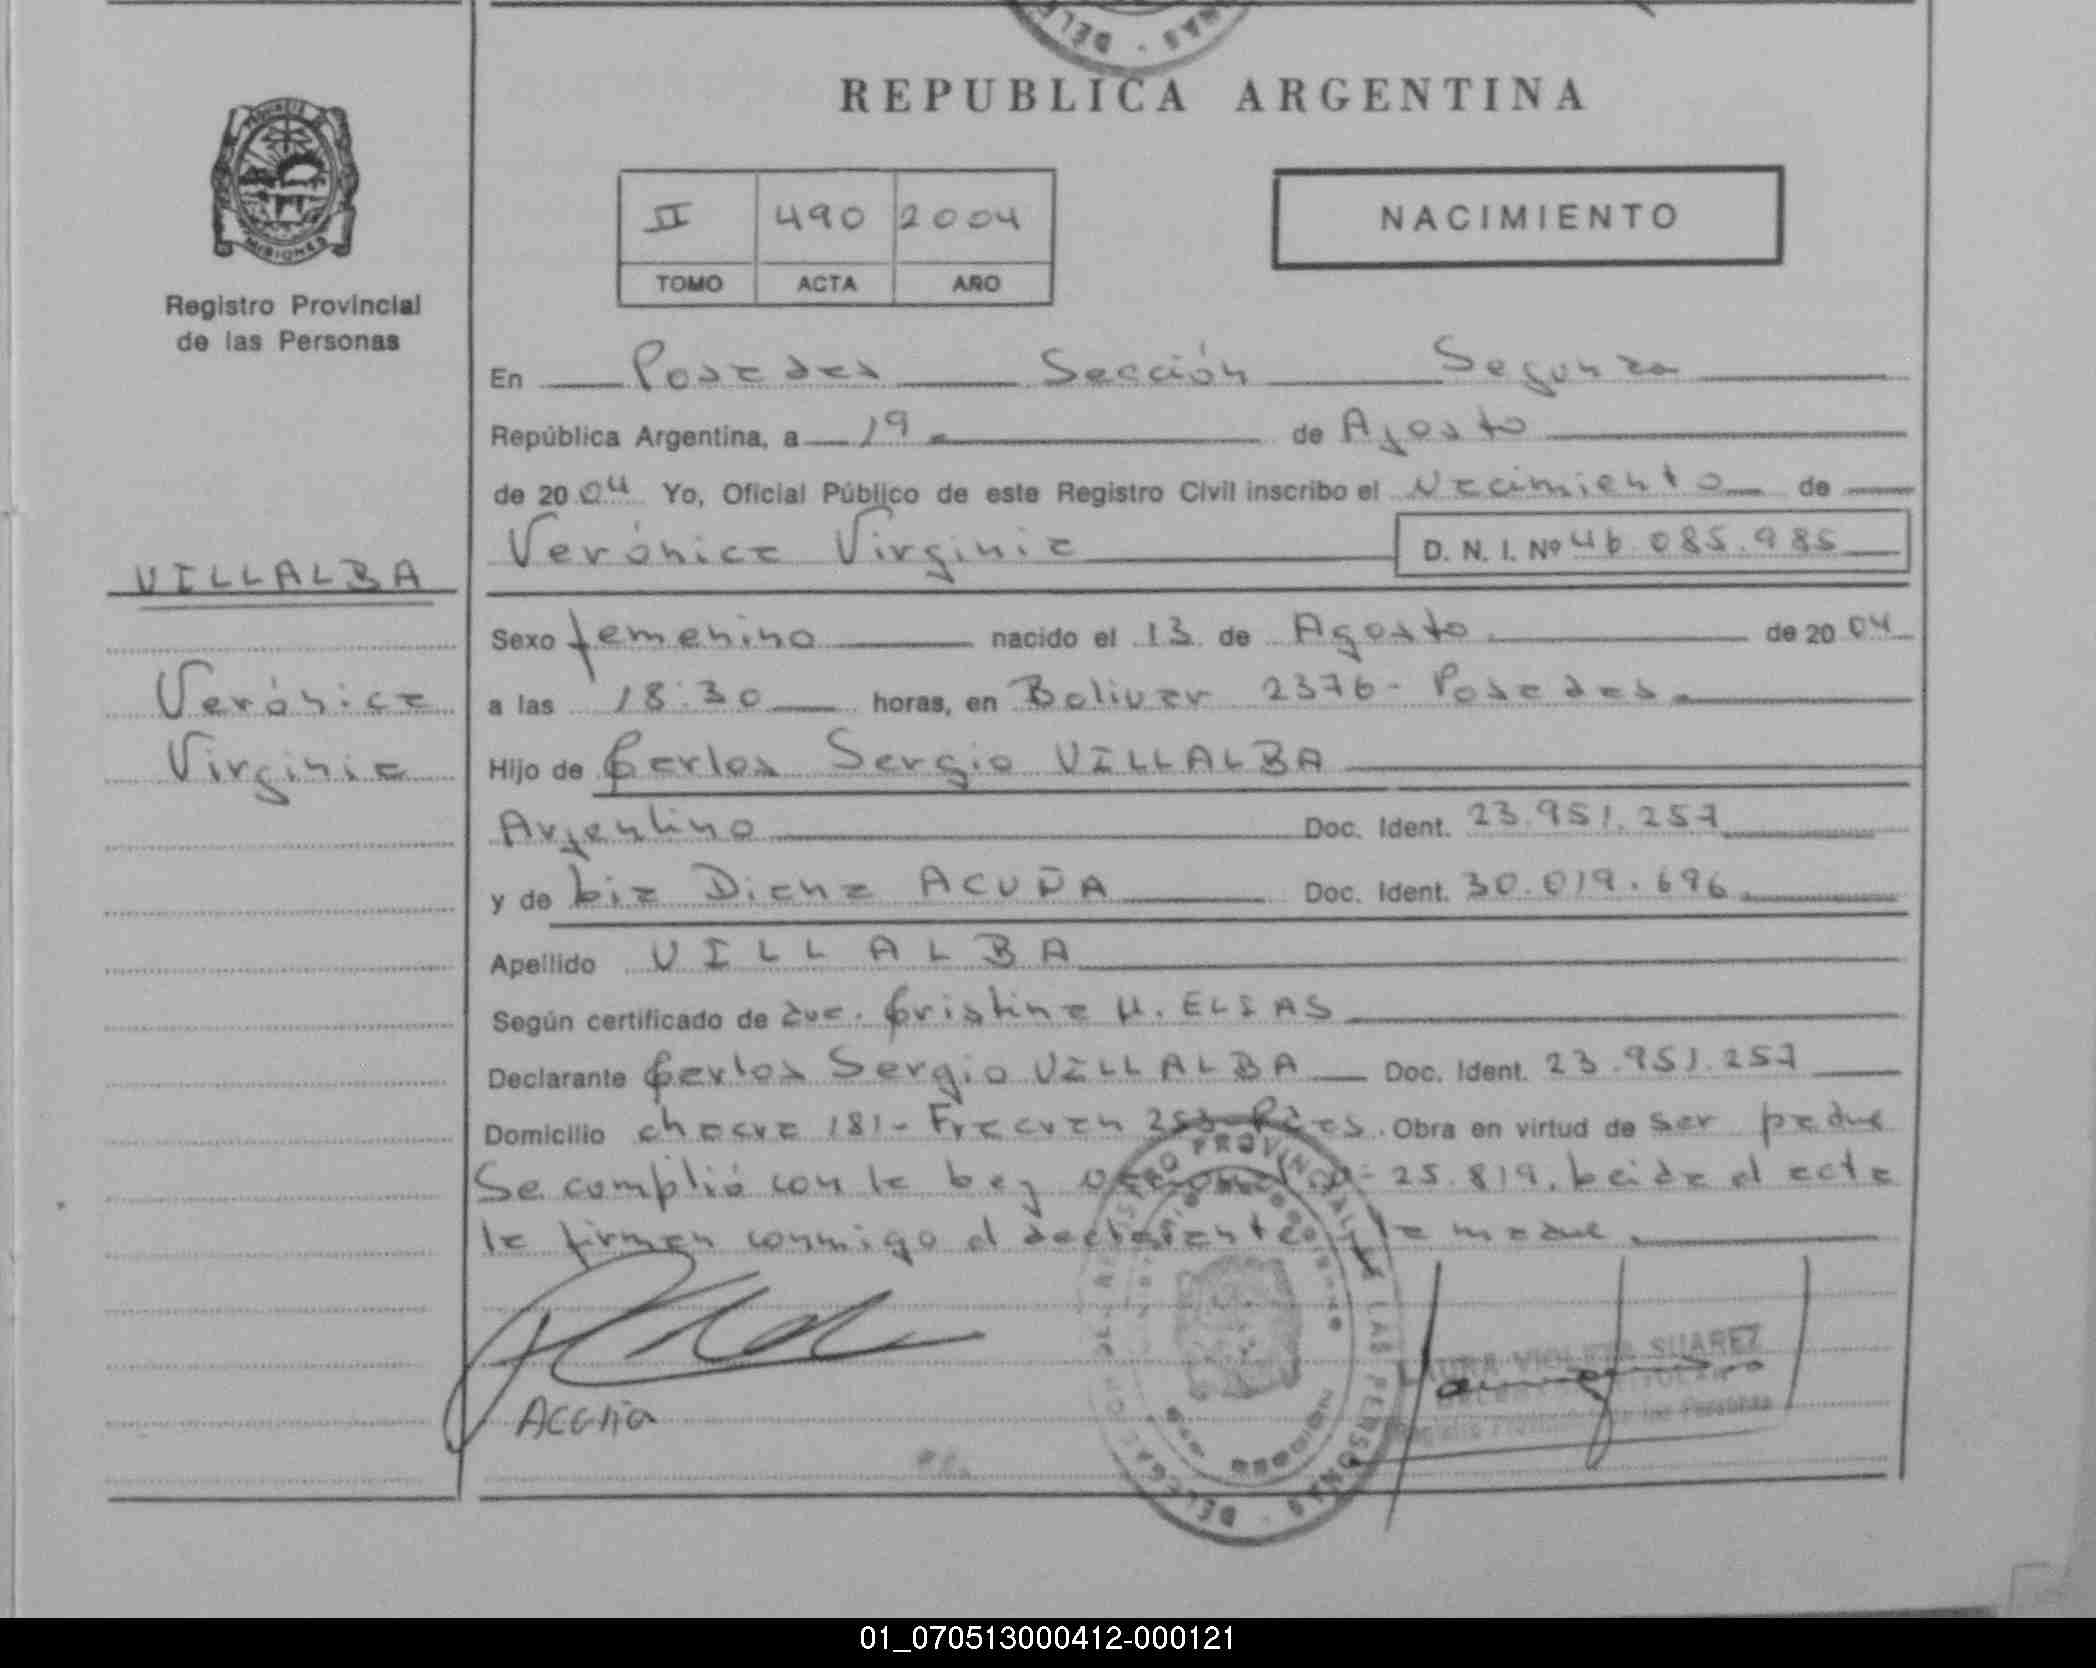 REPUBLICA ARGENTINA
MISIONES
Registro Provincial
de las Personas
II 490 2004
TOMO ACTA AÑO
NACIMIENTO
En Posadas Sección Segunda
República Argentina, a 19 de Agosto
de 2004 Yo, Oficial Público de este Registro Civil inscribo el Nacimiento de
Verónica Virginia D. N. I. Nº 46.085.985
VILLALBA
Verónica
Virginia
Sexo femenino nacido el 13 de Agosto de 2004
a las 18:30 horas, en Bolivar 2376 - Posadas.
Hijo de Carlos Sergio VILLALBA
Argentino Doc. Ident. 23.951.257
y de Liz Diana ACUÑA Doc. Ident. 30.019.696
Apellido VILLALBA
Según certificado de Cristina M. ELIAS
Declarante Carlos Sergio VILLALBA Doc. Ident. 23.951.257
Domicilio chacra 181 - Obra en virtud de ser padre
Se cumplió con la Ley 25.819. Leida el acta
la firman conmigo el declarante la madre.
Acuña
LAURA VIOLETA SUAREZ
Registro Provincial de las Personas
DELEGACION DEL REGISTRO PROVINCIAL DE LAS PERSONAS
01_070513000412-000121